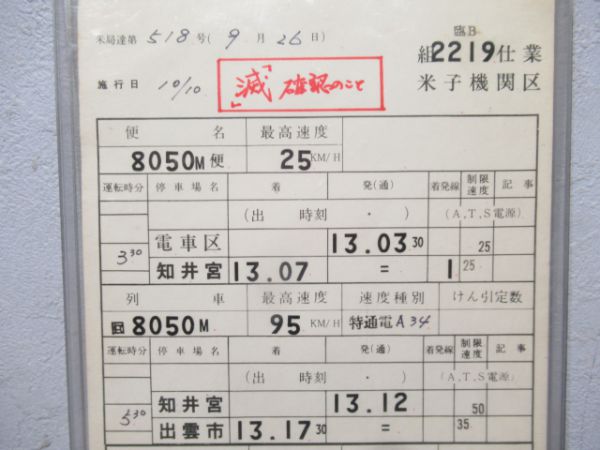 米局達第 518 号(9月26日)
臨B
組2219仕業
施行日 10/10
「滅」確認のこと
米子機関区
便 名 最高速度
8050M便 25KM/H
運転時分 停車場名 着 発(通) 着発線 制限速度 記事
(出 時刻 ・ ) (A,T,S電源)
電車区 13.03 30 25
3 30 知井宮 13.07 = 1 25
列 車 最高速度 速度種別 けん引定数
回8050M 95KM/H 特通電A34
運転時分 停車場名 着 発(通) 着発線 制限速度 記事
(出 時刻 ・ ) (A,T,S電源)
知井宮 13.12 50
5 30 出雲市 13.17 30 = 35